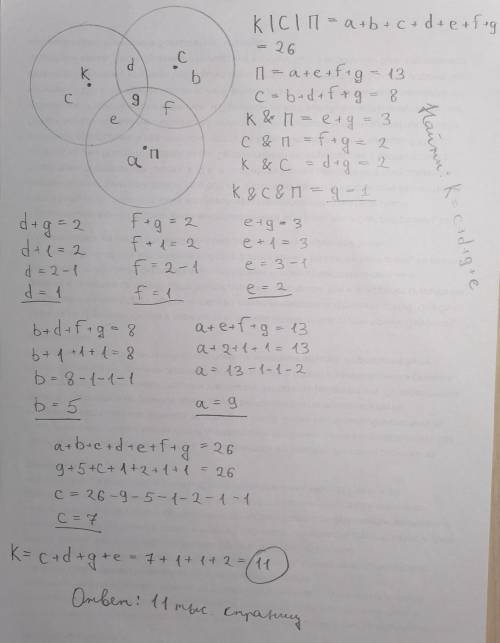 K | C | П = a+b+c+d+e+f+g
= 26
П = a+e+f+g = 13
C = b+d+f+g = 8
K & П = e+g = 3
C & П = f+g = 2
K & C = d+g = 2
K & C & П = g-1
Найти: K = c+d+g+e
K
C
П
d
b
c
g
e
f
a
d+g = 2
d+1 = 2
d = 2-1
d = 1
f+g = 2
f+1 = 2
f = 2-1
f = 1
e+g = 3
e+1 = 3
e = 3-1
e = 2
b+d+f+g = 8
b+1+1+1 = 8
b = 8-1-1-1
b = 5
a+e+f+g = 13
a+2+1+1 = 13
a = 13-1-1-2
a = 9
a+b+c+d+e+f+g = 26
9+5+c+1+2+1+1 = 26
c = 26-9-5-1-2-1-1
c = 7
K = c+d+g+e = 7+1+1+2 = 11
Ответ: 11 тыс. страниц